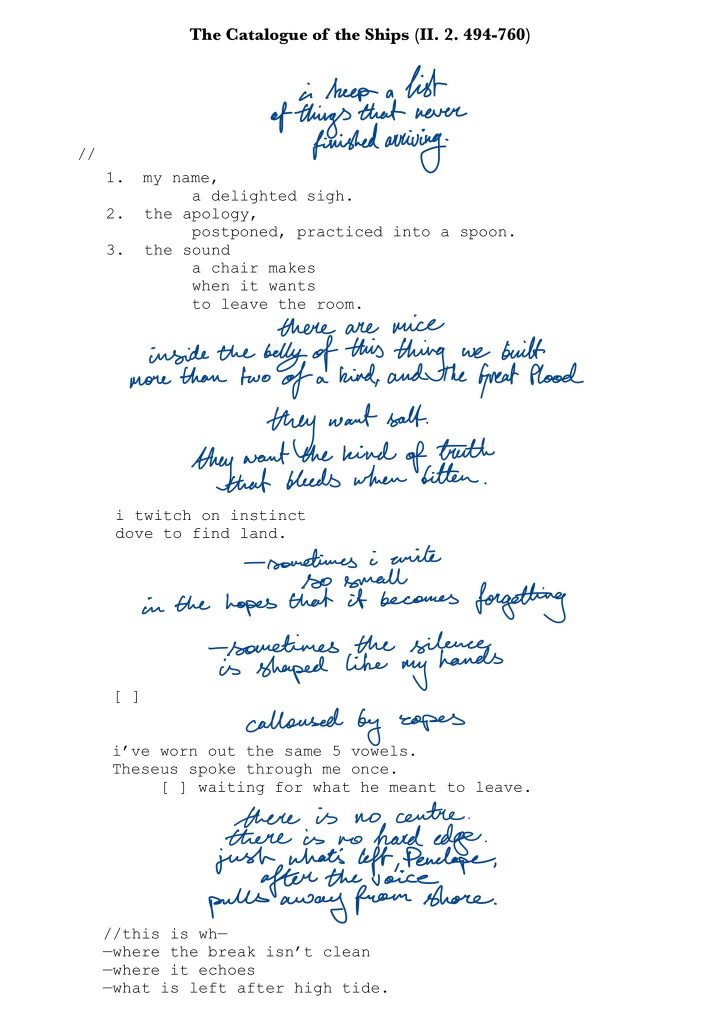 The Catalogue of the Ships (II. 2. 494-760)
i keep a list
of things that never
finished arriving.
//
1. my name,
a delighted sigh.
2. the apology,
postponed, practiced into a spoon.
3. the sound
a chair makes
when it wants
to leave the room.
there are mice
inside the belly of this thing we built
more than two of a kind, and the Great Flood
they want salt.
they want the kind of truth
that bleeds when bitten.
i twitch on instinct
dove to find land.
—sometimes i write
so small
in the hopes that it becomes forgetting
—sometimes the silence
is shaped like my hands
[ ]
calloused by ropes
i've worn out the same 5 vowels.
Theseus spoke through me once.
[ ] waiting for what he meant to leave.
there is no centre.
there is no hard edge.
just what's left, Penelope,
after the voice
pulls away from shore.
//this is wh—
—where the break isn't clean
—where it echoes
—what is left after high tide.